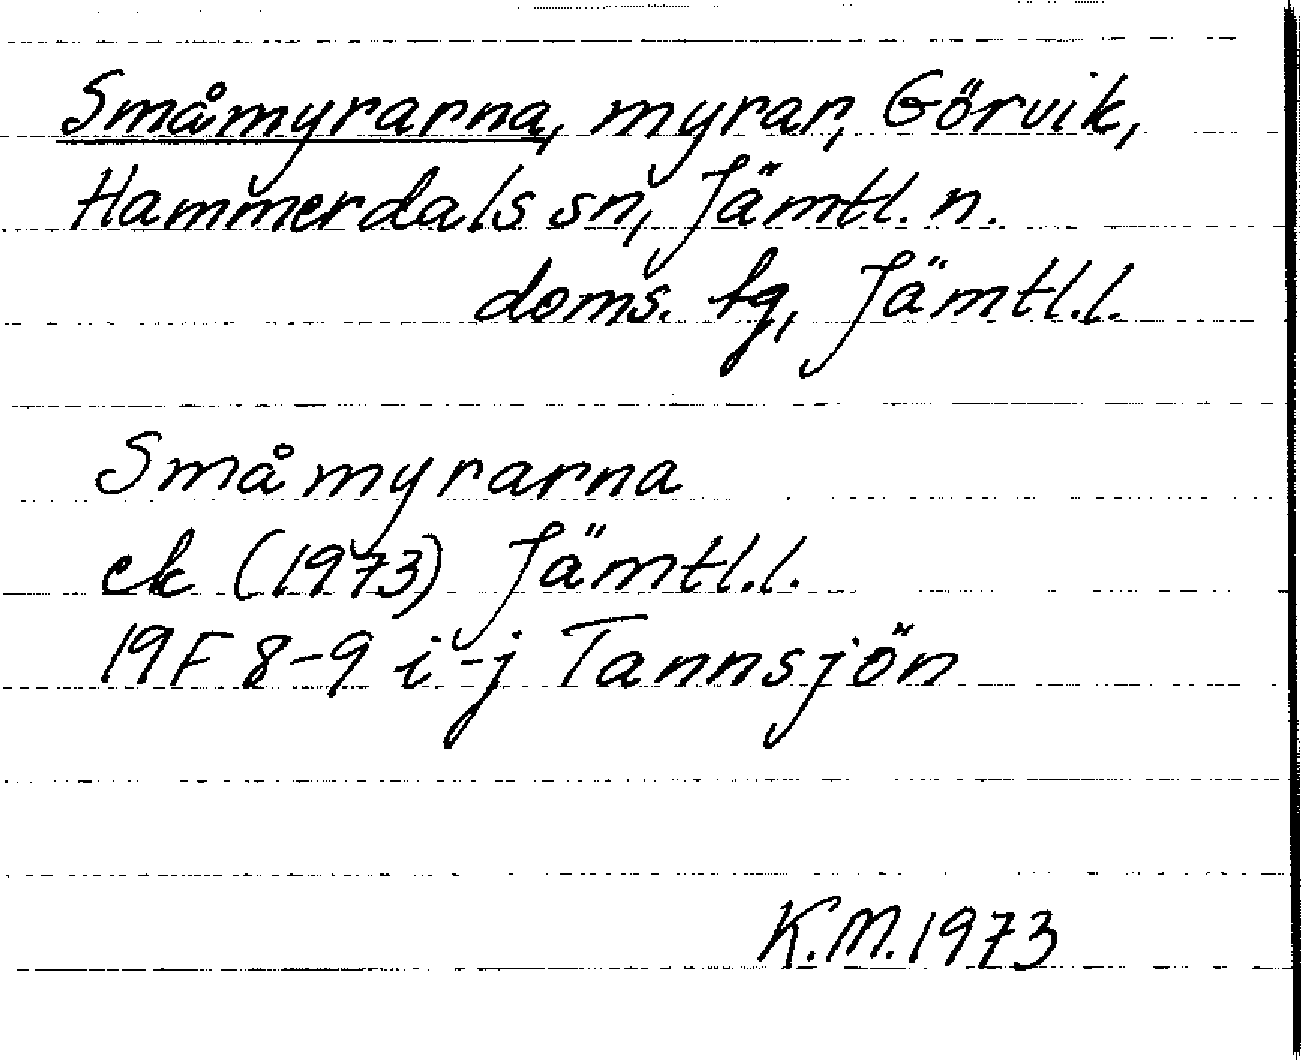 Småmyrarna, myrar, Görvik,
Hammerdals sn, Jämtl. n.
doms. fg, Jämtl.l.
Småmyrarna
ek (1973) Jämtl.l.
19F 8-9 i-j Tannsjön
K.M. 1973